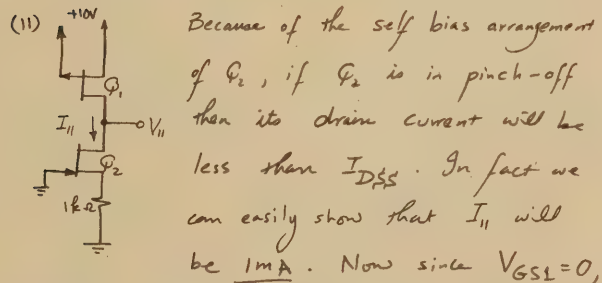 (11) +10V Because of the self bias arrangement
Q1 of Q2, if Q2 is in pinch-off
I11 V11 then its drain current will be
Q2 less than IDSS. In fact we
1kΩ can easily show that I11 will
be 1mA. Now since VGS1=0,